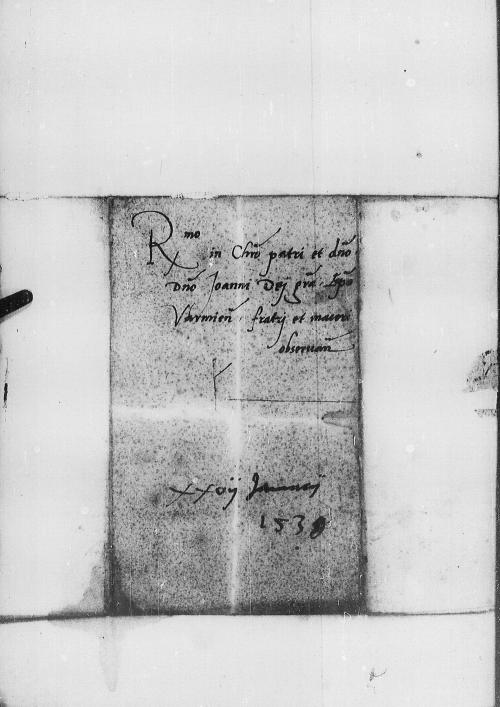 Rmo in Chro patri et dno
dno Joanni Dej gra Epo
Varmien fratrj et maiori
observan
xxvij Januarij
1538